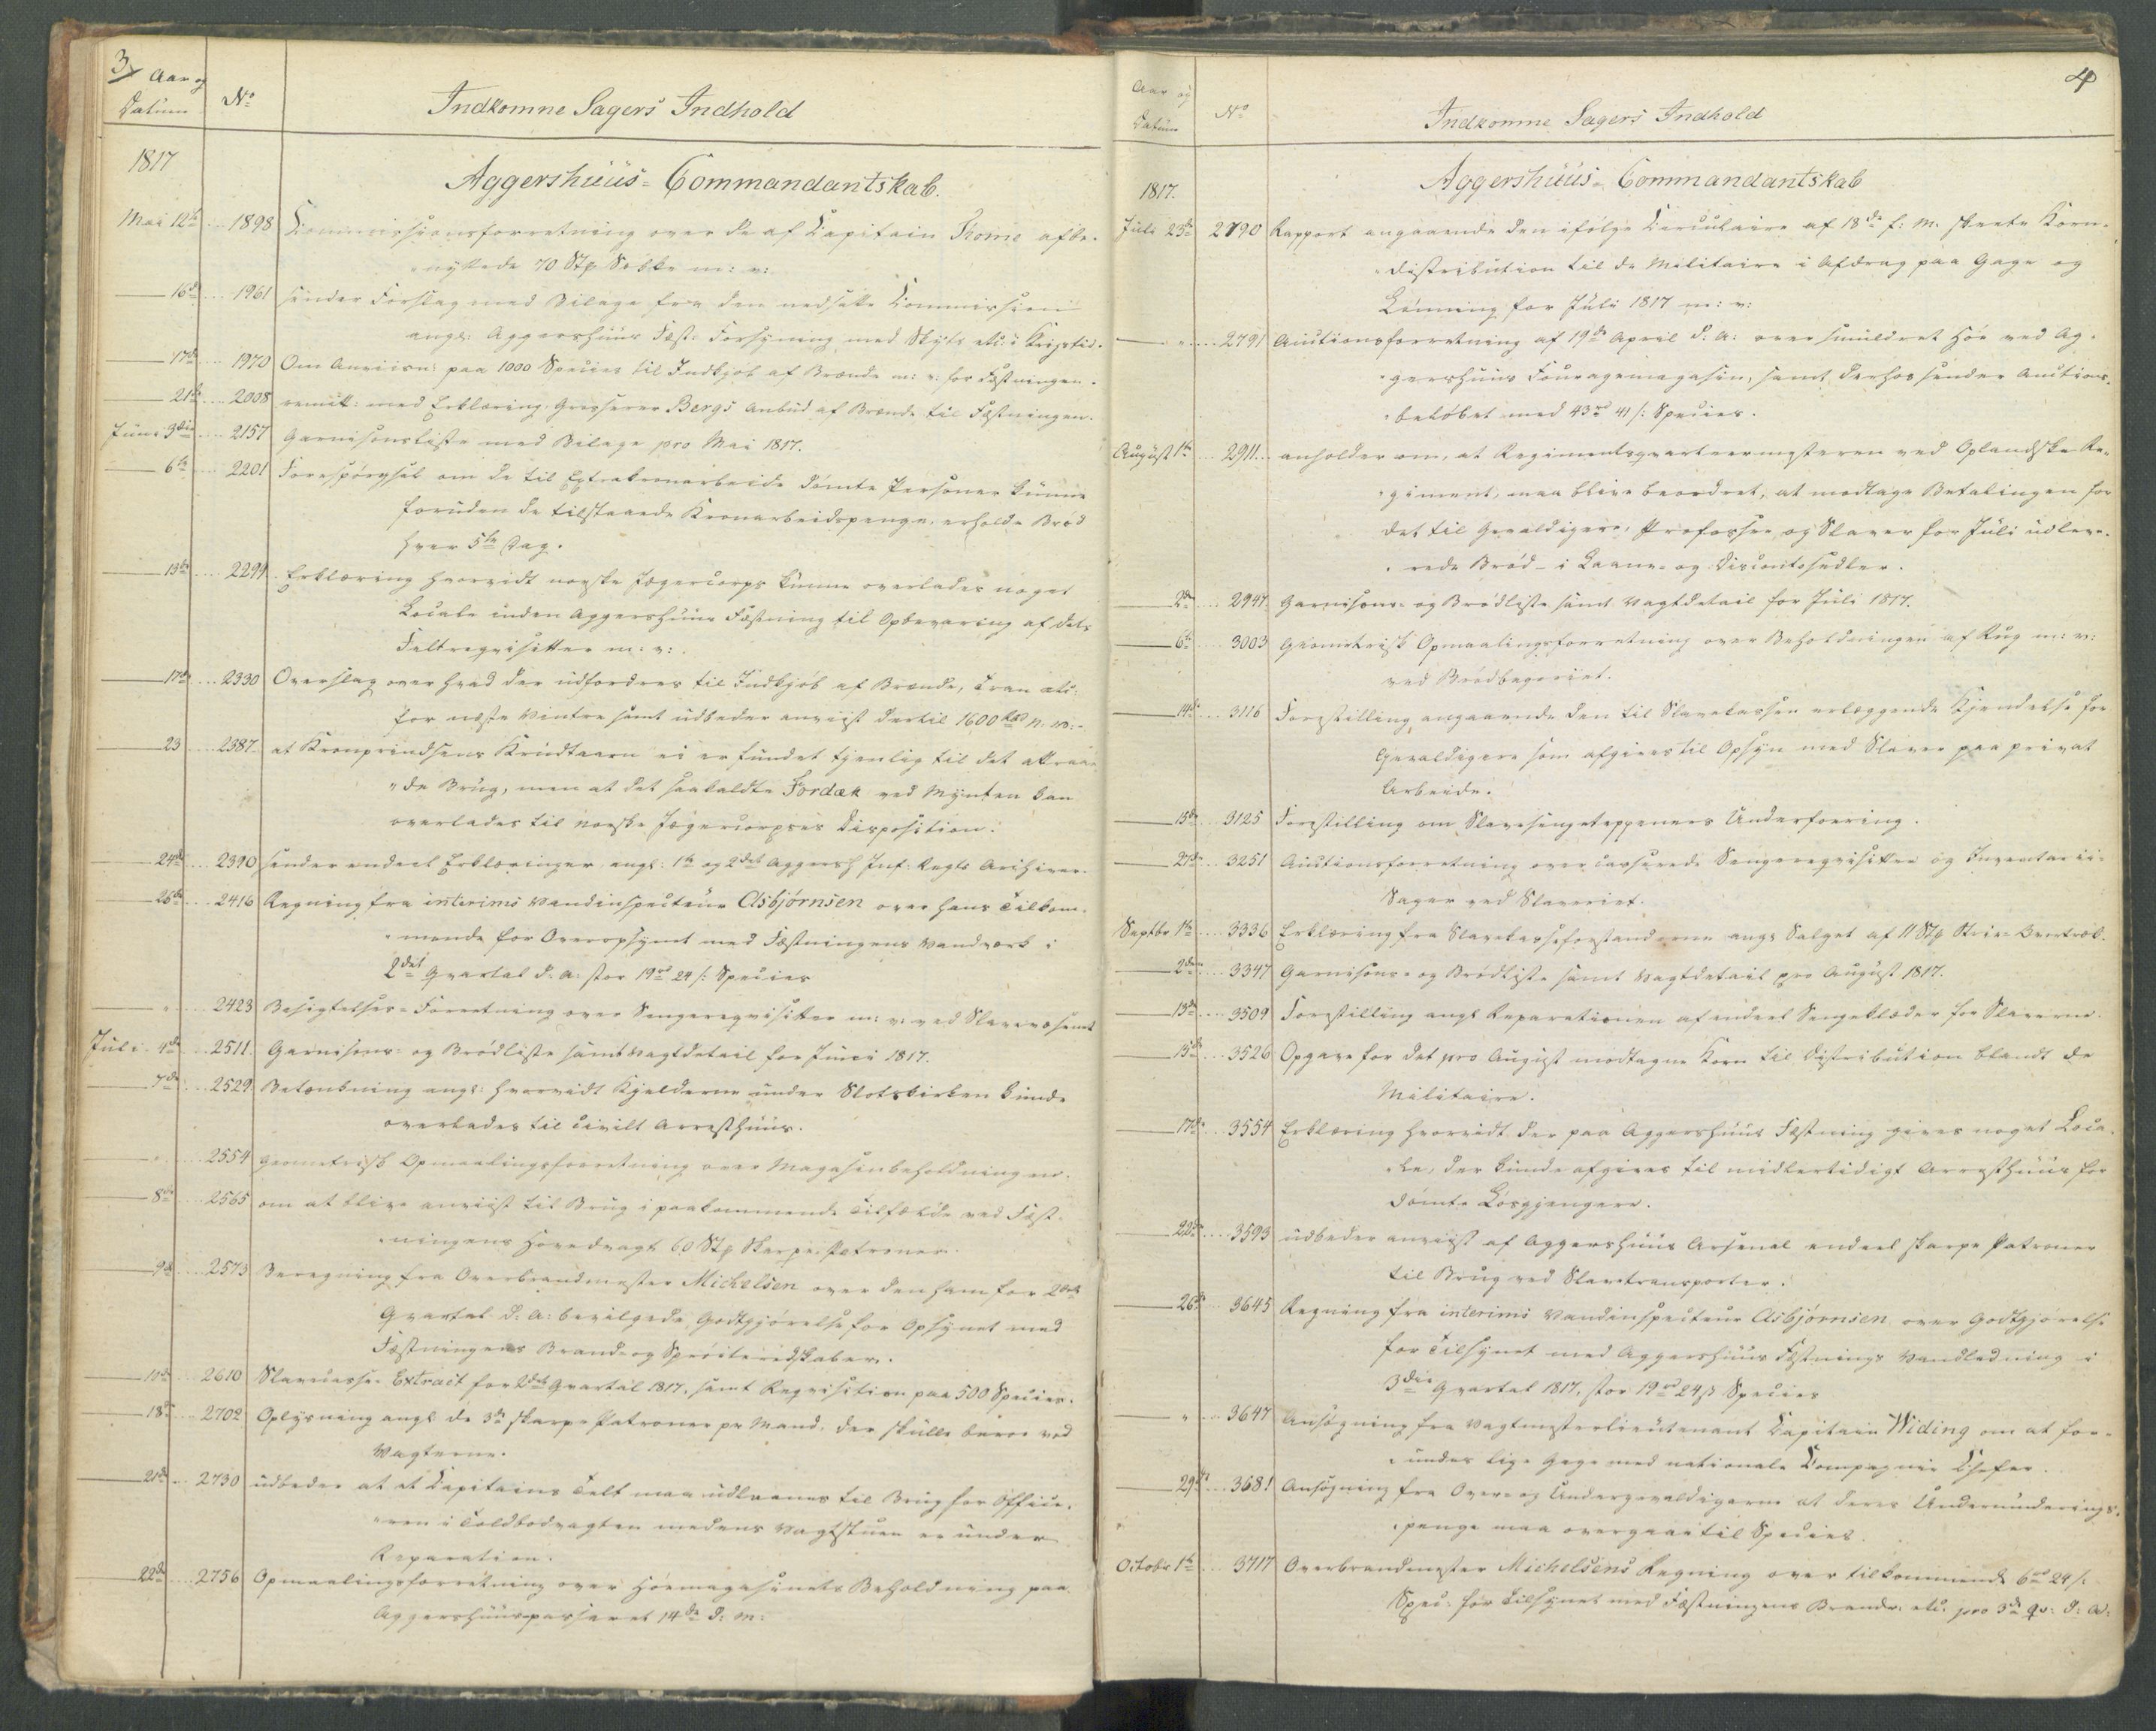 3
Aar og
Datum
No
Indkomne Sagers Indhold
1817
Aggershuus- Commandantskab.
Mai 12te 1898 Commissionsforretning over de af Capitain Thome afbe-
nyttede 70 Stp Sække m: v:
16de 1961 sender Forslag med Bilage fra den nedsatte Commission
angl: Aggershuus Fæst: Forsyning med Skyts etc: i Krigstid.
17de 1970 Om Anviisn: paa 1000 Species til Indkjøb af Brænde m: v: for Fæstningen.
21de 2008 remitt: med Erklæring Grosserer Bergs Anbud af Brænde til Fæstningen.
Juni 3die 2157 Garnisonsliste med Bilage pro Mai 1817.
6te 2201 Forespørgsel om de til Extrakronarbeide dømte Personer kunne
foruden de tilstaaede Kronarbeidspenge, erholde Brød
hver 5te Dag.
13de 2299 Erklæring hvorvidt norske Jægercorps kunne overlades noget
Locale inden Aggershuus Fæstning til Opbevaring af dets
Feltreqvisitter m: v:
17de 2330 Overslag over hvad der udfordres til Indkjøb af Brænde, Tran etc:
for næste Vinter samt udbeder anviist dertil 1600
23 2387 at Kronprindsens Krudttaarn ei er fundet tjenlig til det attraae-
de Brug, men at det saakaldte Fordæk ved Mynten kan
overlades til norske Jægercorpses Disposition.
24de 2390 sender endeel Erklæringer angl: 1te og 2det Aggersh Inf: Regts Archiver.
26de 2416 Regning fra interims Vandinspecteur Asbjørnsen over hans Tilkom-
mende for Overopsynet med Fæstningens Vandværk i
2det Qvartal d. A: stor 19rd 24 s: Species
" 2423 Besigtelses-Forretning over Sengereqvisitter m: v: ved Slaverie samt
Juli 4de 2511 Garnisons- og Brødliste samt Vagtdetail for Juni 1817.
7de 2529 Betænkning angl: hvorvidt Kjelderne under Slotskirken kunde
overlades til civilt Arresthuus.
" 2554 Geometrisk Opmaalingsforretning over Magasinbeholdningen.
8de 2565 om at blive anviist til Brug i paakommende Tilfælde ved Fæst-
ningens Hovedvagt 60 Stp skarpe Patroner.
9de 2573 Beregning fra Overbrandmester Michelsen over den ham for 2det
Qvartal d. A: bevilgede Godtgjørelse for Opsynet med
Fæstningens Brand- og Sprøiteredskaber.
10de 2610 Slavecasse- Extract for 2det Qvartal 1817, samt Reqvisition paa 500 Species.
18de 2702 Oplysning angl de 3de skarpe Patroner pr Mand, der skulle bæres ved
Vagterne.
21de 2730 udbeder at et Capitains Telt maa udlaanes til Brug for Office-
ren i Toldbodvagten medens Vagtstuen er under
Reparation.
22de 2756 Opmaalingsforretning over Høemagasinets Beholdning paa
Aggershuus passeret 14de d: M:
4
Aar og
Datum
No
Indkomne Sagers Indhold
1817.
Aggershuus- Commandantskab
Juli 23de 2790 Rapport angaaende den ifølge Circulaire af 18de f: M: skeete Korn-
distribution til de Militaire i Afdrag paa Gage og
Lønning for Juli 1817 m: v:
" 2791 Auctionsforretning af 19de April d: A: over smuldret Høe ved Ag-
gershuus Fouragemagasin, samt derhos sender Auctions-
beløbet med 43rd 41 s: Species.
August 1te 2911 anholder om, at Regimentsqvarteermesteren ved Oplandske Re-
giment, maa blive beordret, at modtage Betalingen for
det til Gevaldigere, Profosser og Slaver for Juli udleve-
rede Brød - i Laane- og Discontosedler.
2den 2947 Garnisons- og Brødliste samt Vagtdetail for Juli 1817.
6te 3003 Geometrisk Opmaalingsforretning over Beholdningen af Rug m: v:
ved Brødbageriet.
14de 3116 Forestilling angaaende den til Slavekassen erlæggende Kjendelse for
Gevaldigere som afgives til Opsyn med Slaver paa privat
Arbeide.
15de 3125 Forestilling om Slavesengetæppenes Underforing.
27de 3251 Auctionsforretning over casserede Sengereqvisitter og Inventarii-
Sager ved Slaveriet.
Septbr 1te 3336 Erklæring fra Slavekasseforstanderne angl Salget af 11 Stp Strie-Overtræk.
2den 3347 Garnisons- og Brødliste samt Vagtdetail pro August 1817.
13de 3509 Forestilling angl Reparationen af endeel Sengeklæder for Slaverne.
15de 3526 Opgave for det pro August modtagne Korn til Distribution blandt de
Militaire.
17de 3554 Erklæring hvorvidt der paa Aggershuus Fæstning gives noget Loca-
le, der kunde afgives til midlertidigt Arresthuus for
dømte Løsgjengere.
22de 3593 udbeder anviist af Aggershuus Arsenal endeel skarpe Patroner
til Brug ved Slavetransporter.
26de 3645 Regning fra interims Vandinspecteur Asbjørnsen over Godtgjørelse
for Tilsynet med Aggershuus Fæstnings Vandledning i
3die Qvartal 1817, stor 19rd 24 s Species
" 3647 Ansøgning fra Vagtmesterlieutenant Capitain Widing om at for-
undes lige Gage med nationale Compagnie Chefer.
29de 3681 Ansøgning fra Over- og Undergevaldigerne at deres Undermunderings-
penge maa overgaae til Species.
Octobr 1te 3717 Overbrandmester Michelsens Regning over tilkommende 6rd 24 s:
Spec: for Tilsynet med Fæstningens Brandv: etc: pro 3de qv: d: A: